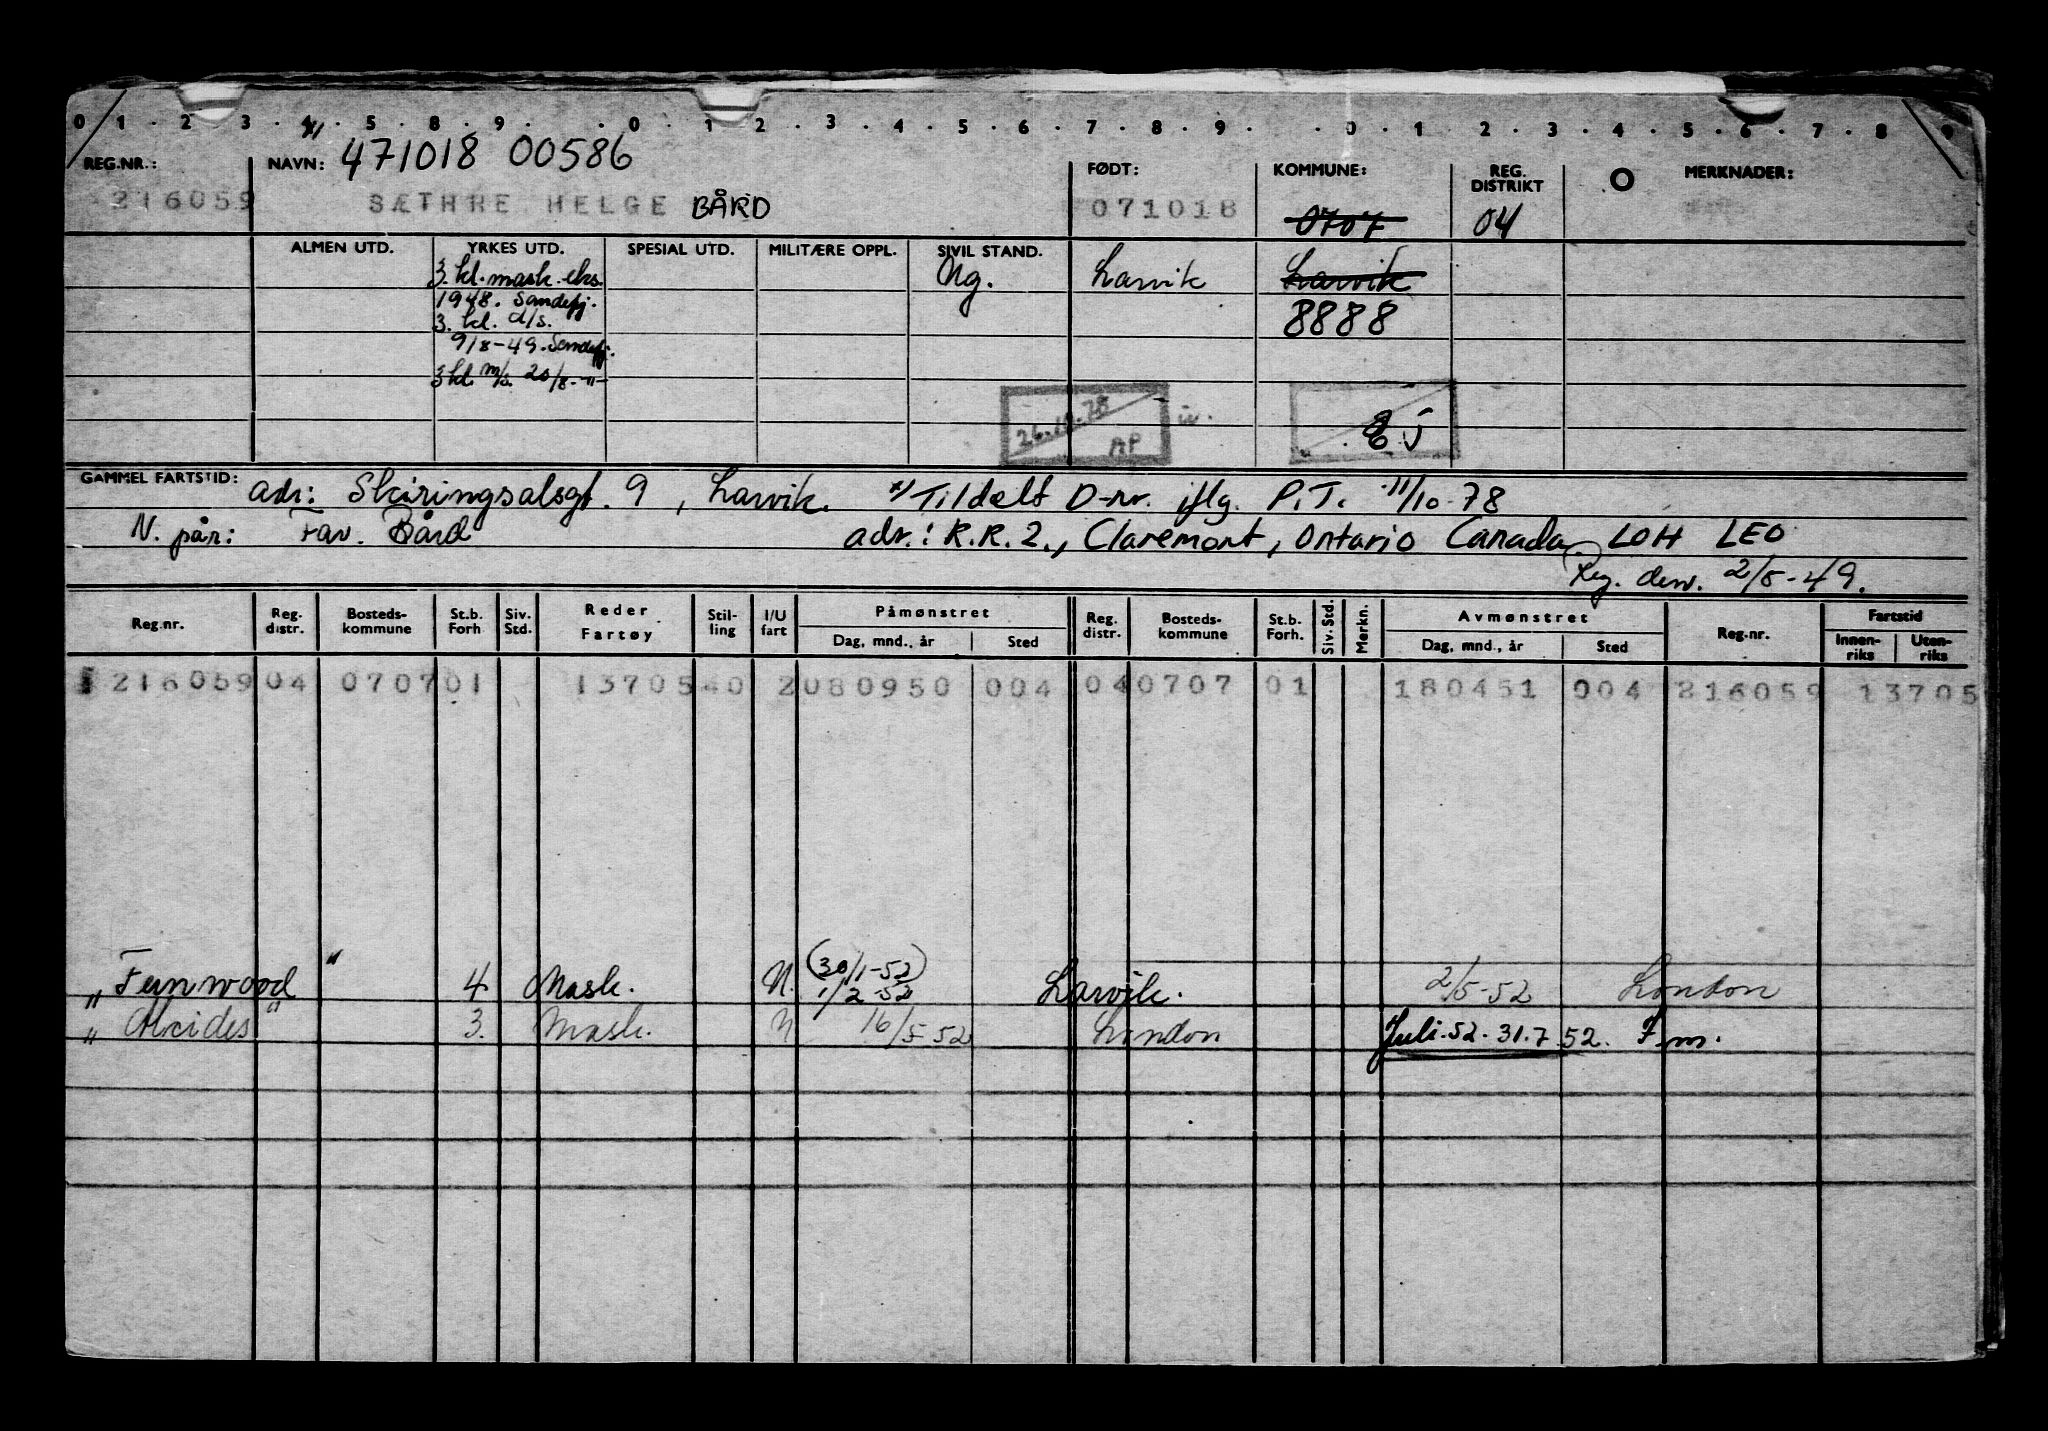 0 1 . 2 . 3 . 4 . 5 . 8 . 9 . . . 0 . 1 2 . 3 . 4 . 5 . 6 . 7 . 8 . 9 . . . 0 . 1 . 2 . 3 . 4 . 5 . 6 . 7 . 8 . 9
REG.NR.: NAVN: 471018 00586 FØDT: KOMMUNE: REG. DISTRIKT O MERKNADER:
216059 SÆTHRE HELGE BÅRD 071018 0707 04
ALMEN UTD. YRKES UTD. SPESIAL UTD. MILITÆRE OPPL. SIVIL STAND.
3. kl. mask. eks. Ug. Larvik Larvik
1948. Sandefj. 8888
3. kl. d/s.
9/8-49. Sandefj.
3 kl. m/s. 20/8-"-
26.10.78
AP
GAMMEL FARTSTID: adr: Skiringsalsgt. 9, Larvik. x) Tildelt D-nr. iflg. P.T. 11/10-78
N. pår: Far. Bård adr.: R.R.2., Claremont, Ontario Canada. LOH LEO
Reg. den. 2/8-49.
Reg.nr. Reg. distr. Bosteds-kommune St.b. Forh Siv. Std. Reder Fartøy Stil-ling I/U fart Påmønstret Dag, mnd., år Sted Reg. distr. Bosteds-kommune St.b. Forh. Siv. Std. Merkn. Avmønstret Dag, mnd., år Sted Reg.nr. Fartstid Innen-riks Uten-riks
216059 04 0707 01 13705 40 2 080950 004 04 0707 01 180451 004 216059 13705
(30/1-52)
„ Fernwood " 4 Mask. N. 1/2-52 Larvik. 2/5-52 London
„ Alcides " 3. Mask. N 16/5-52 London Juli.52. 31.7.52. F.m.